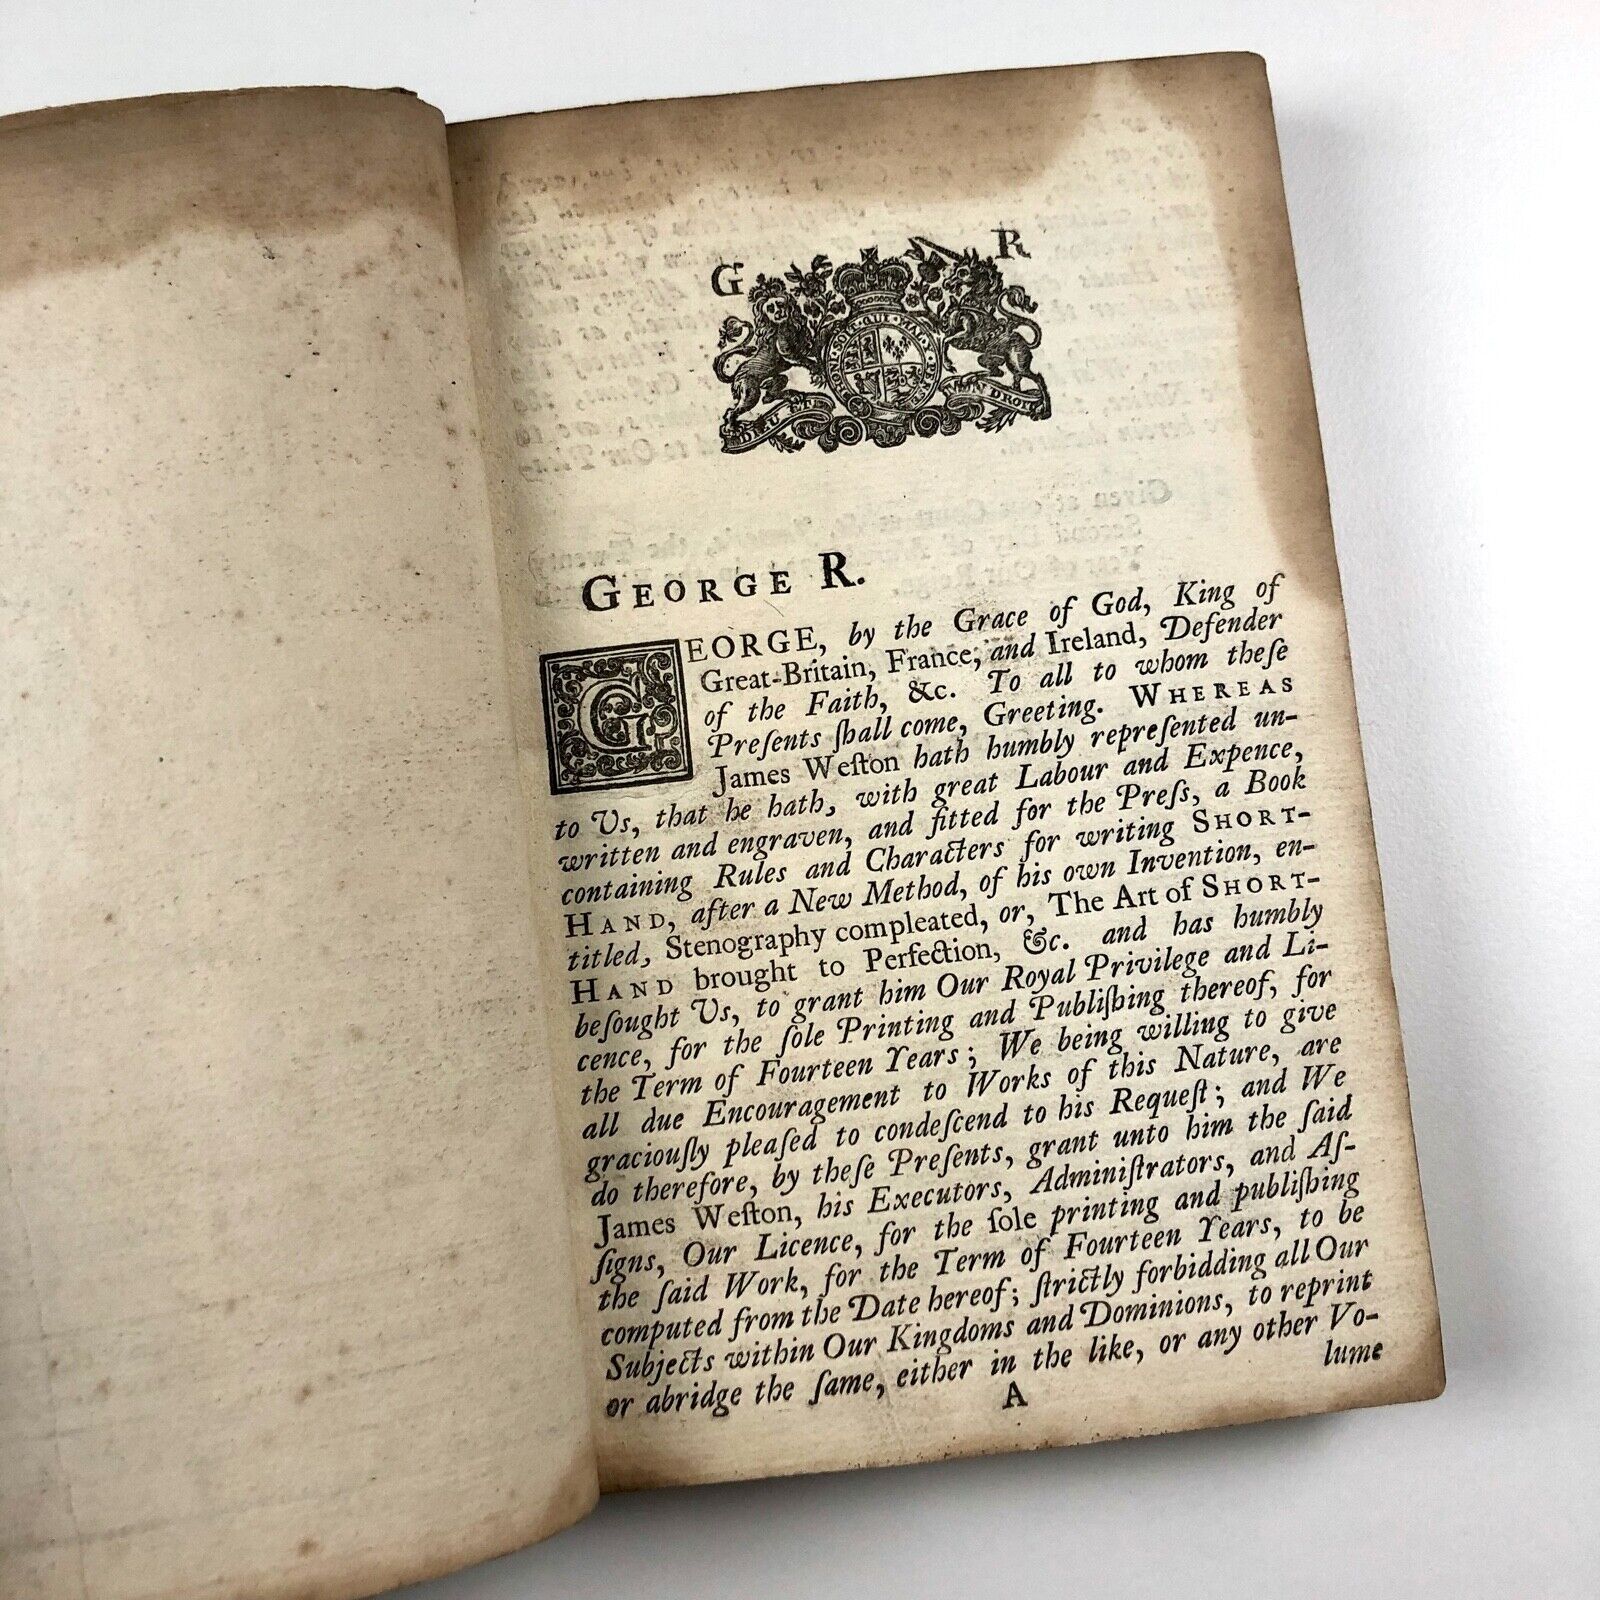 G R
HONI · SOIT · QUI · MAL · Y · PENSE
DIEU ET MON DROIT
GEORGE R.
GEORGE, by the Grace of God, King of
Great-Britain, France, and Ireland, Defender
of the Faith, &c. To all to whom theſe
Preſents ſhall come, Greeting. WHEREAS
James Weſton hath humbly repreſented un-
to Us, that he hath, with great Labour and Expence,
written and engraven, and fitted for the Preſs, a Book
containing Rules and Characters for writing SHORT-
HAND, after a New Method, of his own Invention, en-
titled, Stenography compleated, or, The Art of SHORT-
HAND brought to Perfection, &c. and has humbly
beſought Us, to grant him Our Royal Privilege and Li-
cence, for the ſole Printing and Publiſhing thereof, for
the Term of Fourteen Years; We being willing to give
all due Encouragement to Works of this Nature, are
graciouſly pleaſed to condeſcend to his Requeſt; and We
do therefore, by theſe Preſents, grant unto him the ſaid
James Weſton, his Executors, Adminiſtrators, and Aſ-
ſigns, Our Licence, for the ſole printing and publiſhing
the ſaid Work, for the Term of Fourteen Years, to be
computed from the Date hereof; ſtrictly forbidding all Our
Subjects within Our Kingdoms and Dominions, to reprint
or abridge the ſame, either in the like, or any other Vo-
A lume